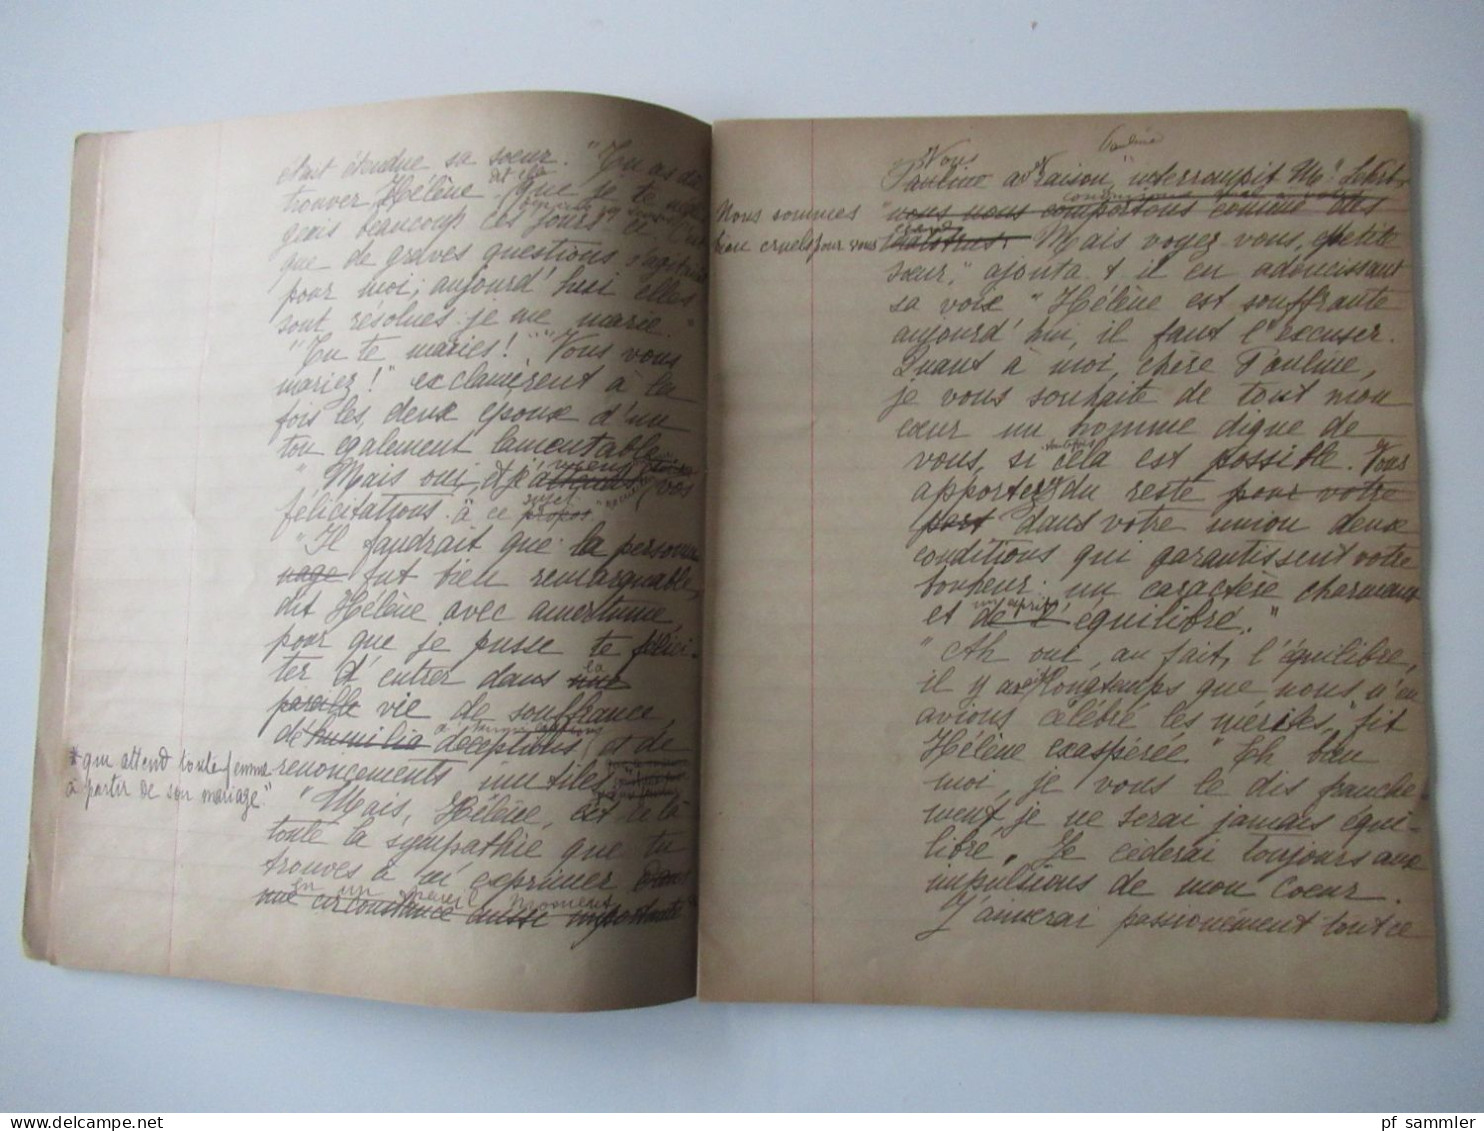 était étendue sa soeur. "Tu as dû
trouver, Hélène dit-elle que je te négli-
geais beaucoup ces jours-ci. C'est
que de graves questions s'agitaient
pour moi; aujourd'hui elles
sont résolues: je me marie."
"Tu te maries!" "Vous vous
mariez!" exclamèrent à la
fois les deux époux d'un
ton également lamentable.
"Mais oui, et j'attends vos
félicitations à ce propos
sujet
"Il faudrait que la person
nage fut bien remarquable,
dit Hélène avec amertume,
pour que je pusse te félici-
ter d'entrer dans une
la
pareille vie de souffrance,
de humilia déceptions et de
renoncements inutiles
* qui attend toute femme
à partir de son mariage."
"Mais, Hélène, est-ce là
toute la sympathie que tu
trouves à m'exprimer dans
en un pareil moment
une circonstance aussi importante
Pauline
Vous
Pauline a raison" interrompit Mr.
Nous sommes
bien cruels pour vous
"nous nous comportons comme des
Mais voyez-vous, petite
soeur," ajouta-t-il en adoucissant
sa voix "Hélène est souffrante
aujourd'hui, il faut l'excuser.
Quant à moi, chère Pauline,
je vous souhaite de tout mon
coeur un homme digne de
vous, si cela est possible. Vous
toutefois
apportez du reste pour votre
part dans votre union deux
conditions qui garantissent votre
bonheur: un caractère charmant
et un esprit
de l' équilibré."
"Ah oui, au fait, l'équilibre,
il y avait longtemps que nous n'en
avions célébré les mérites," fit
Hélène exaspérée. "Eh bien
moi, je vous le dis franche-
ment, je ne serai jamais équi-
libre. Je céderai toujours aux
impulsions de mon coeur.
J'aimerai passionément tout ce
pf sammler